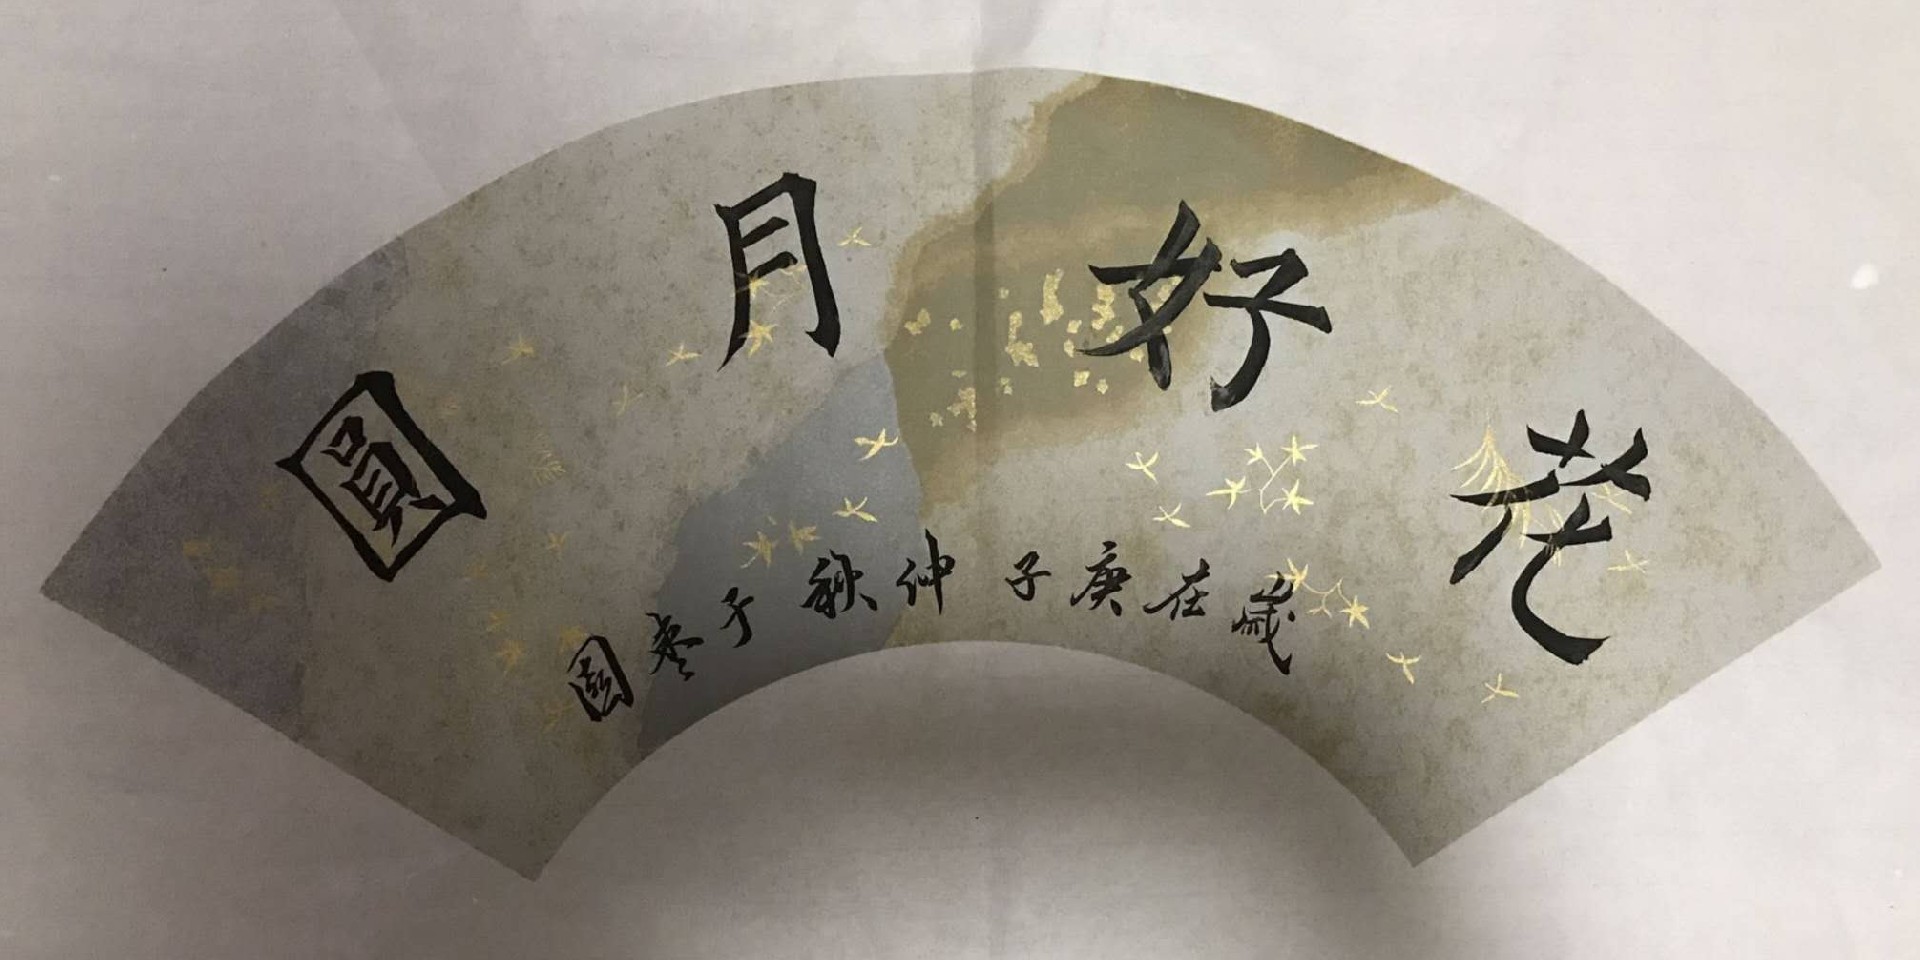 花好月圓
歲在庚子仲秋于棗園